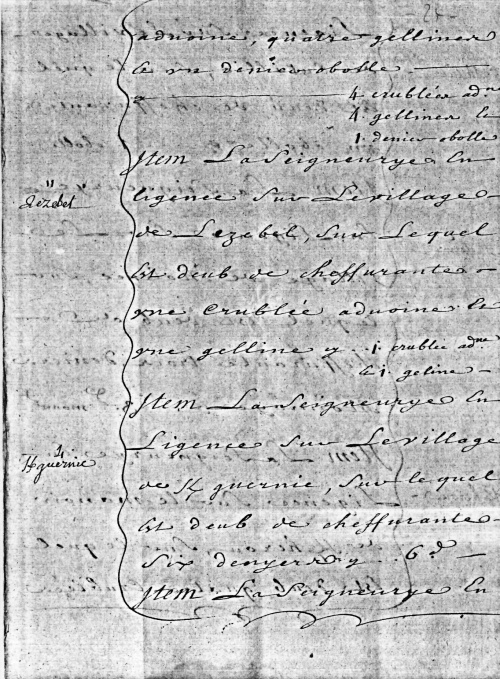 advoine, quatre gellines
et un denier obolle
4 crublées adne
4 gellines et
1 denier obolle
Item La Seigneurye En
Lezebel
ligence sur Levillage
de Lezebel, sur Lequel
Est deub de cheffrante
une crublée advoine et
une gelline y 1 crublee adne
et 1 geline
Item La Seigneurye En
Ligence sur Levillage
Kguernic
de Kguernic, sur lequel
Est deub de cheffrante
six denyers y 6d
Item La Seigneurye En